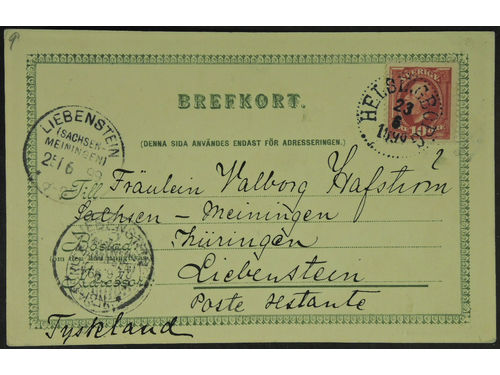 SVERIGE
BREFKORT.
HELSINGBORG
23
6
1899
10
(DENNA SIDA ANVÄNDES ENDAST FÖR ADRESSERINGEN.)
LIEBENSTEIN
(SACHSEN-
MEININGEN)
25/6
99
Till Fräulein Valborg Hafström
Sachsen - Meiningen
Bostad
Thüringen
Liebenstein
Poste restante
Tyskland